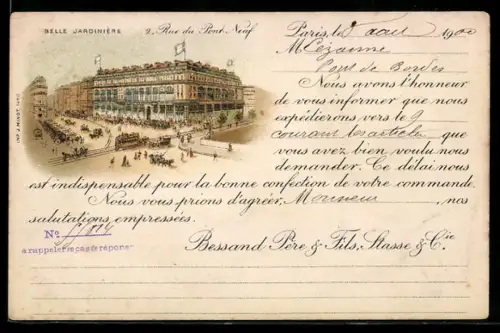 BELLE JARDINIÈRE
2, Rue du Pont-Neuf
Paris, le 8 aout 1900
M Cézanne
Pont de Bordes
Nous avons l'honneur
de vous informer que nous
expédierons vers le 9
courant les article que
vous avez bien voulu nous
demander. Ce délai nous
est indispensable pour la bonne confection de votre commande.
Nous vous prions d'agréer, Monsieur, nos
salutations empressées.
No
à rappeler en cas de réponse
Bessand Père & Fils, Stasse & Cie
IMP. J. MINOT.